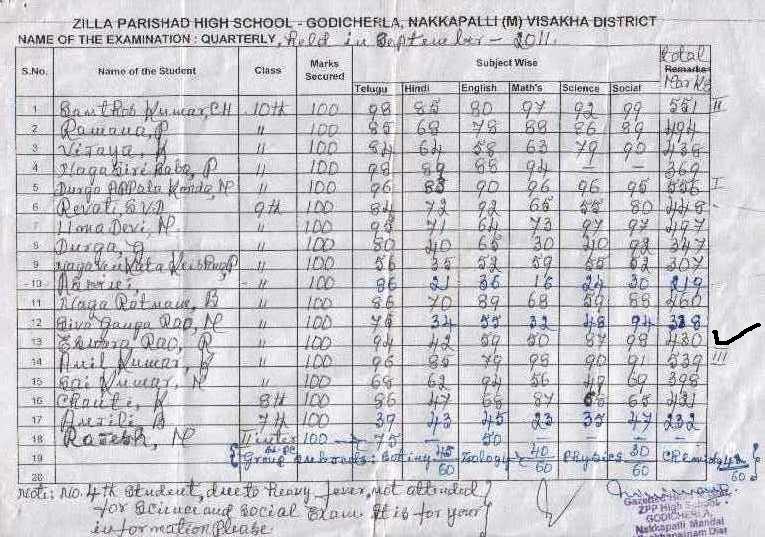 ZILLA PARISHAD HIGH SCHOOL - GODICHERLA, NAKKAPALLI (M) VISAKHA DISTRICT
NAME OF THE EXAMINATION : QUARTERLY, held in September - 2011.
S.No. Name of the Student Class Marks Secured Subject Wise total Remarks Marks
Telugu Hindi English Math's Science Social
1 Santhosh Kumar, CH 10th 100 98 85 80 97 92 99 551 II
2 Ramana, P " 100 85 68 78 88 86 89 494
3 Vijaya, " 100 84 64 58 63 79 90 438
4 Nagasiri Baba, P " 100 98 89 88 94 — — 369
5 Durga Appala Konda, N " 100 96 83 90 96 96 95 556 I
6 Revati S.V.D 9th 100 84 72 92 65 55 80 448
7 Uma Devi, N. " 100 95 71 64 73 97 97 497
8 Durga, G " 100 80 40 65 30 40 92 347
9 P " 100 56 35 52 59 55 52 307
10 " 100 86 21 36 16 24 30 219
11 Naga Ratnam, B " 100 86 70 89 68 59 88 460
12 Siva Ganga Rao, N " 100 75 34 55 32 48 94 338
13 Eswara Rao, R " 100 94 42 59 50 87 98 430
14 Anil Kumar, " 100 96 85 79 98 90 91 539 III
15 Sai Kumar, N " 100 68 62 94 56 49 69 398
16 K 8th 100 86 47 66 87 65 431
17 Anjili, B 7th 100 39 43 45 23 35 47 232
18 Rajesh, N II inter 100 → 75 — 50 — — —
19 Bi.P.C Group subjects: Botiny 45/60 Zoology → 40/60 Physics 30/60 /60
20
Note: No. 4th Student, due to heavy fever, not attended
for Science and Social Exam. It is for your
information Please
ZPP High School
GODICHERLA,
Nakkapalli Mandal
Visakhapatnam Dist